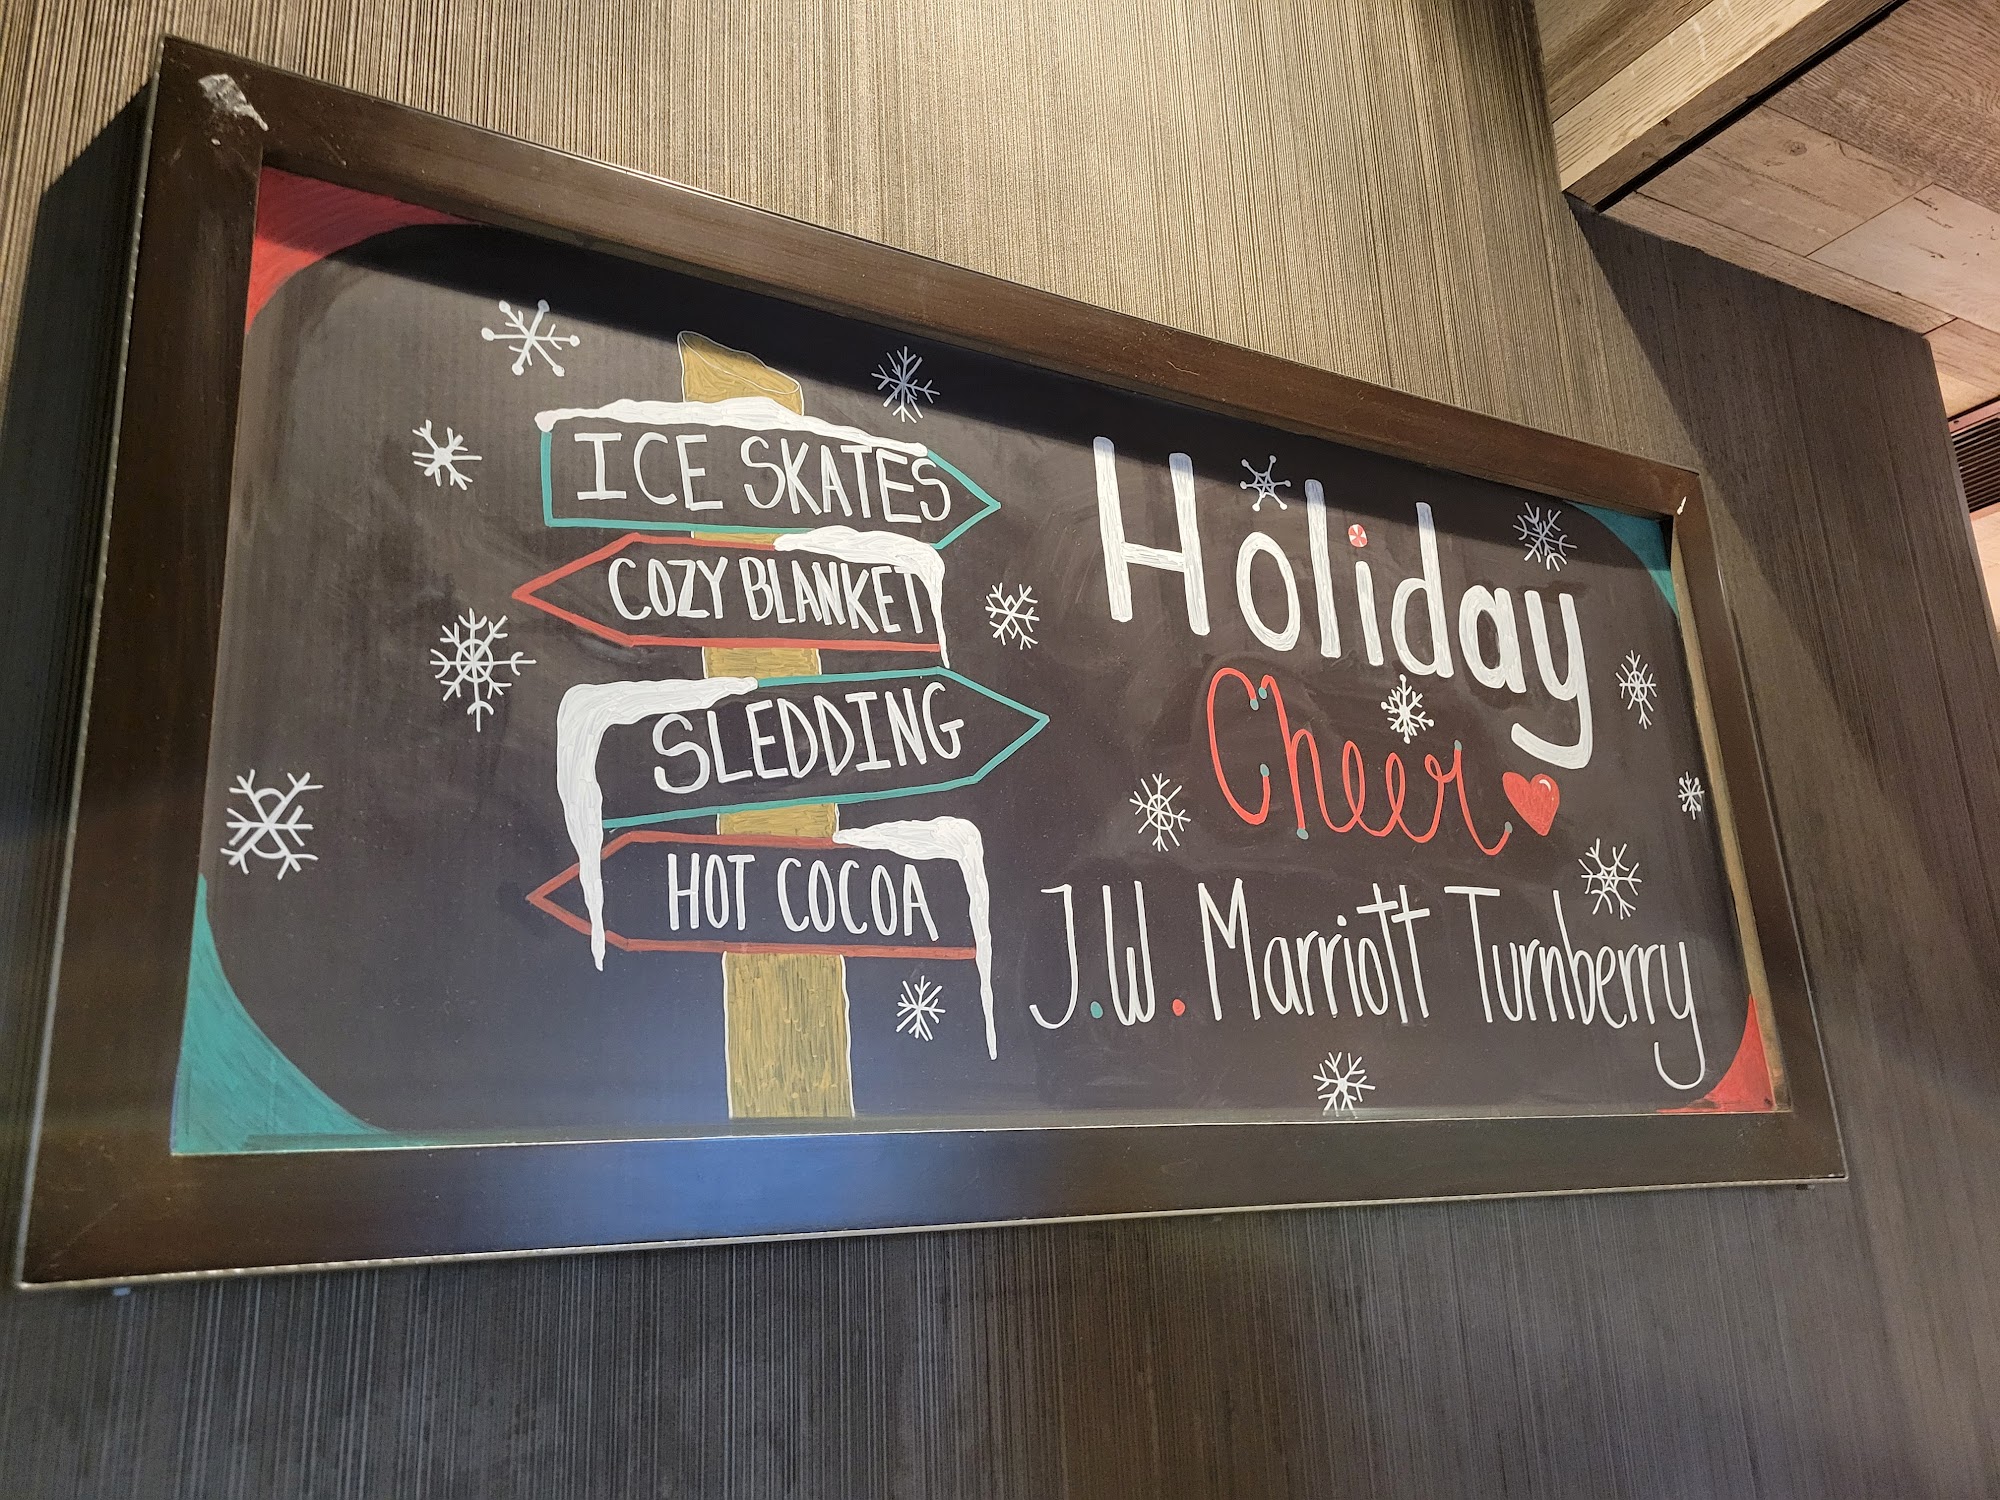 ICE SKATES
COZY BLANKET
SLEDDING
HOT COCOA
Holiday
Cheer
J.W. Marriott Turnberry